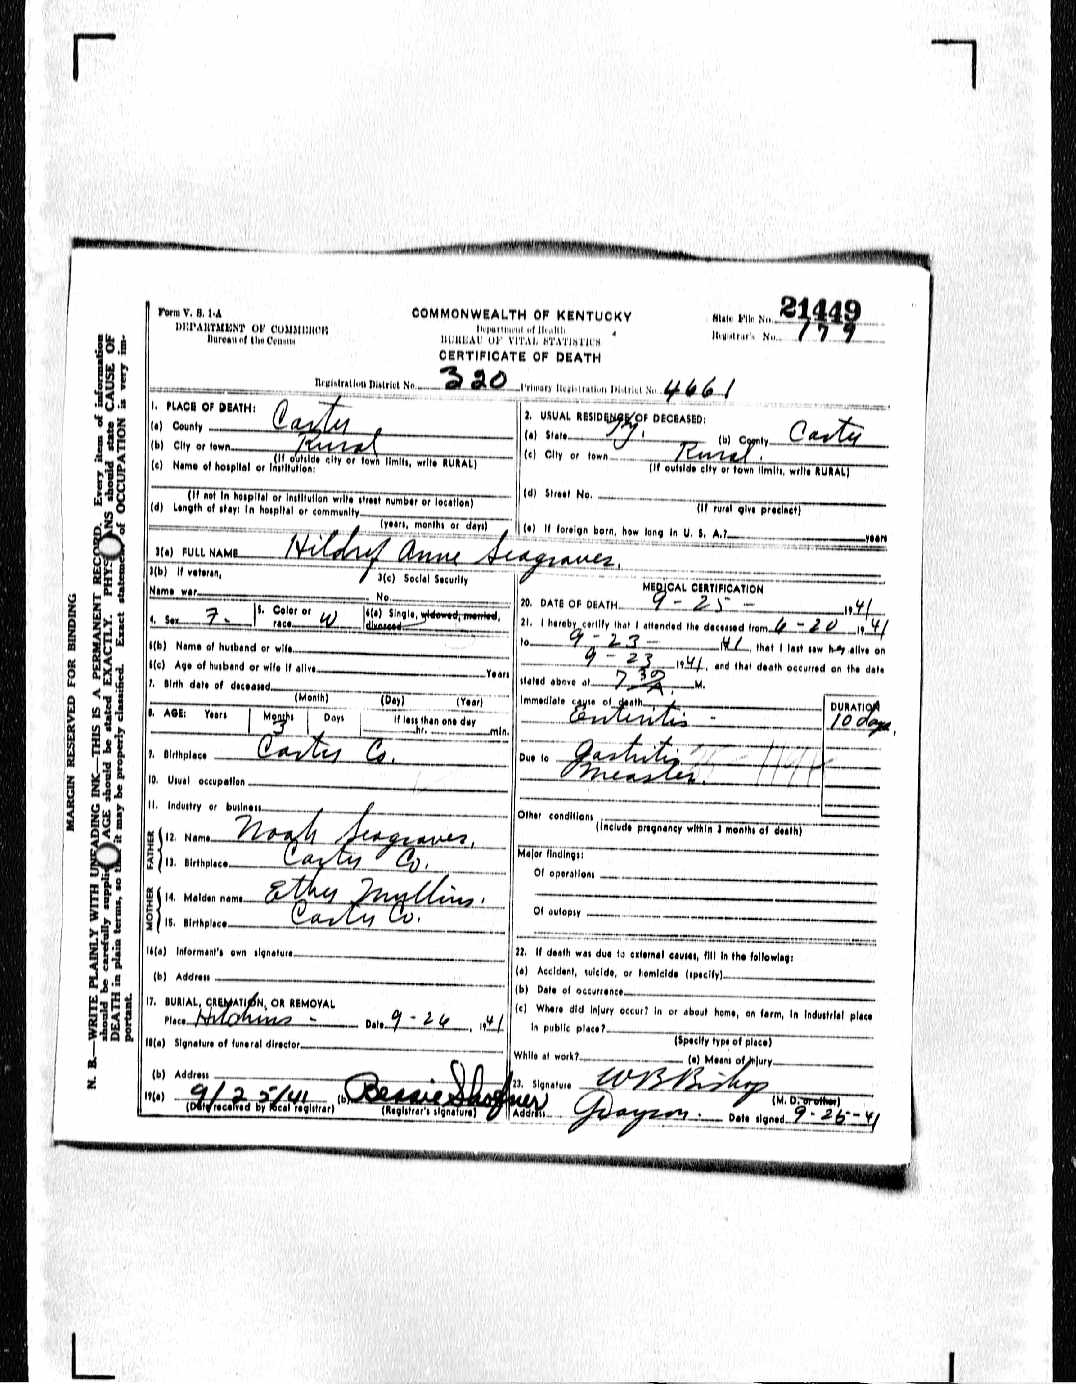 Form V. S. 1-A
DEPARTMENT OF COMMERCE
Bureau of the Census
COMMONWEALTH OF KENTUCKY
Department of Health
BUREAU OF VITAL STATISTICS
CERTIFICATE OF DEATH
State File No. 21449
Registrar's No. 179
Registration District No. 320 Primary Registration District No. 4661
MARGIN RESERVED FOR BINDING
N. B.—WRITE PLAINLY WITH UNFADING INK—THIS IS A PERMANENT RECORD. Every item of information
should be carefully supplied. AGE should be stated EXACTLY. PHYSICIANS should state CAUSE OF
DEATH in plain terms, so that it may be properly classified. Exact statement of OCCUPATION is very im-
portant.
1. PLACE OF DEATH:
(a) County Carter
(b) City or town Rural
(If outside city or town limits, write RURAL)
(c) Name of hospital or institution:
(If not in hospital or institution write street number or location)
(d) Length of stay: In hospital or community
(years, months or days)
2. USUAL RESIDENCE OF DECEASED:
(a) State Ky. (b) County Carter
(c) City or town Rural.
(If outside city or town limits, write RURAL)
(d) Street No.
(If rural give precinct)
(e) If foreign born, how long in U. S. A.? years
3(a) FULL NAME Anne Seagraves.
3(b) If veteran,
Name war
3(c) Social Security
No.
4. Sex F. 5. Color or race W 6(a) Single, widowed, married, divorced
6(b) Name of husband or wife
6(c) Age of husband or wife if alive Years
7. Birth date of deceased
(Month) (Day) (Year)
8. AGE: Years Months 3 Days If less than one day
hr. min.
9. Birthplace Carter Co.
10. Usual occupation
11. Industry or business
FATHER
12. Name Noah Seagraves.
13. Birthplace Carter Co.
MOTHER
14. Maiden name Ether Mullins.
15. Birthplace Carter Co.
16(a) Informant's own signature
(b) Address
17. BURIAL, CREMATION, OR REMOVAL
Place Hitchins - Date 9-26, 1941
18(a) Signature of funeral director
(b) Address
19(a) 9/25/41 (b) Bessie Shofner
(Date received by local registrar) (Registrar's signature)
MEDICAL CERTIFICATION
20. DATE OF DEATH 9-25- 1941
21. I hereby certify that I attended the deceased from 6-20, 1941
to 9-23- 41, that I last saw her alive on
9-23 1941, and that death occurred on the date
stated above at 7 30 A. M.
Immediate cause of death
Enteritis -
DURATION
10 days.
Due to Gastritis
Measles.
Other conditions
(Include pregnancy within 3 months of death)
Major findings:
Of operations
Of autopsy
22. If death was due to external causes, fill in the following:
(a) Accident, suicide, or homicide (specify)
(b) Date of occurrence
(c) Where did injury occur? In or about home, on farm, in industrial place
in public place?
(Specify type of place)
While at work? (e) Means of injury
23. Signature W B Bishop
(M. D. or other)
Address Grayson. Date signed 9-25-41